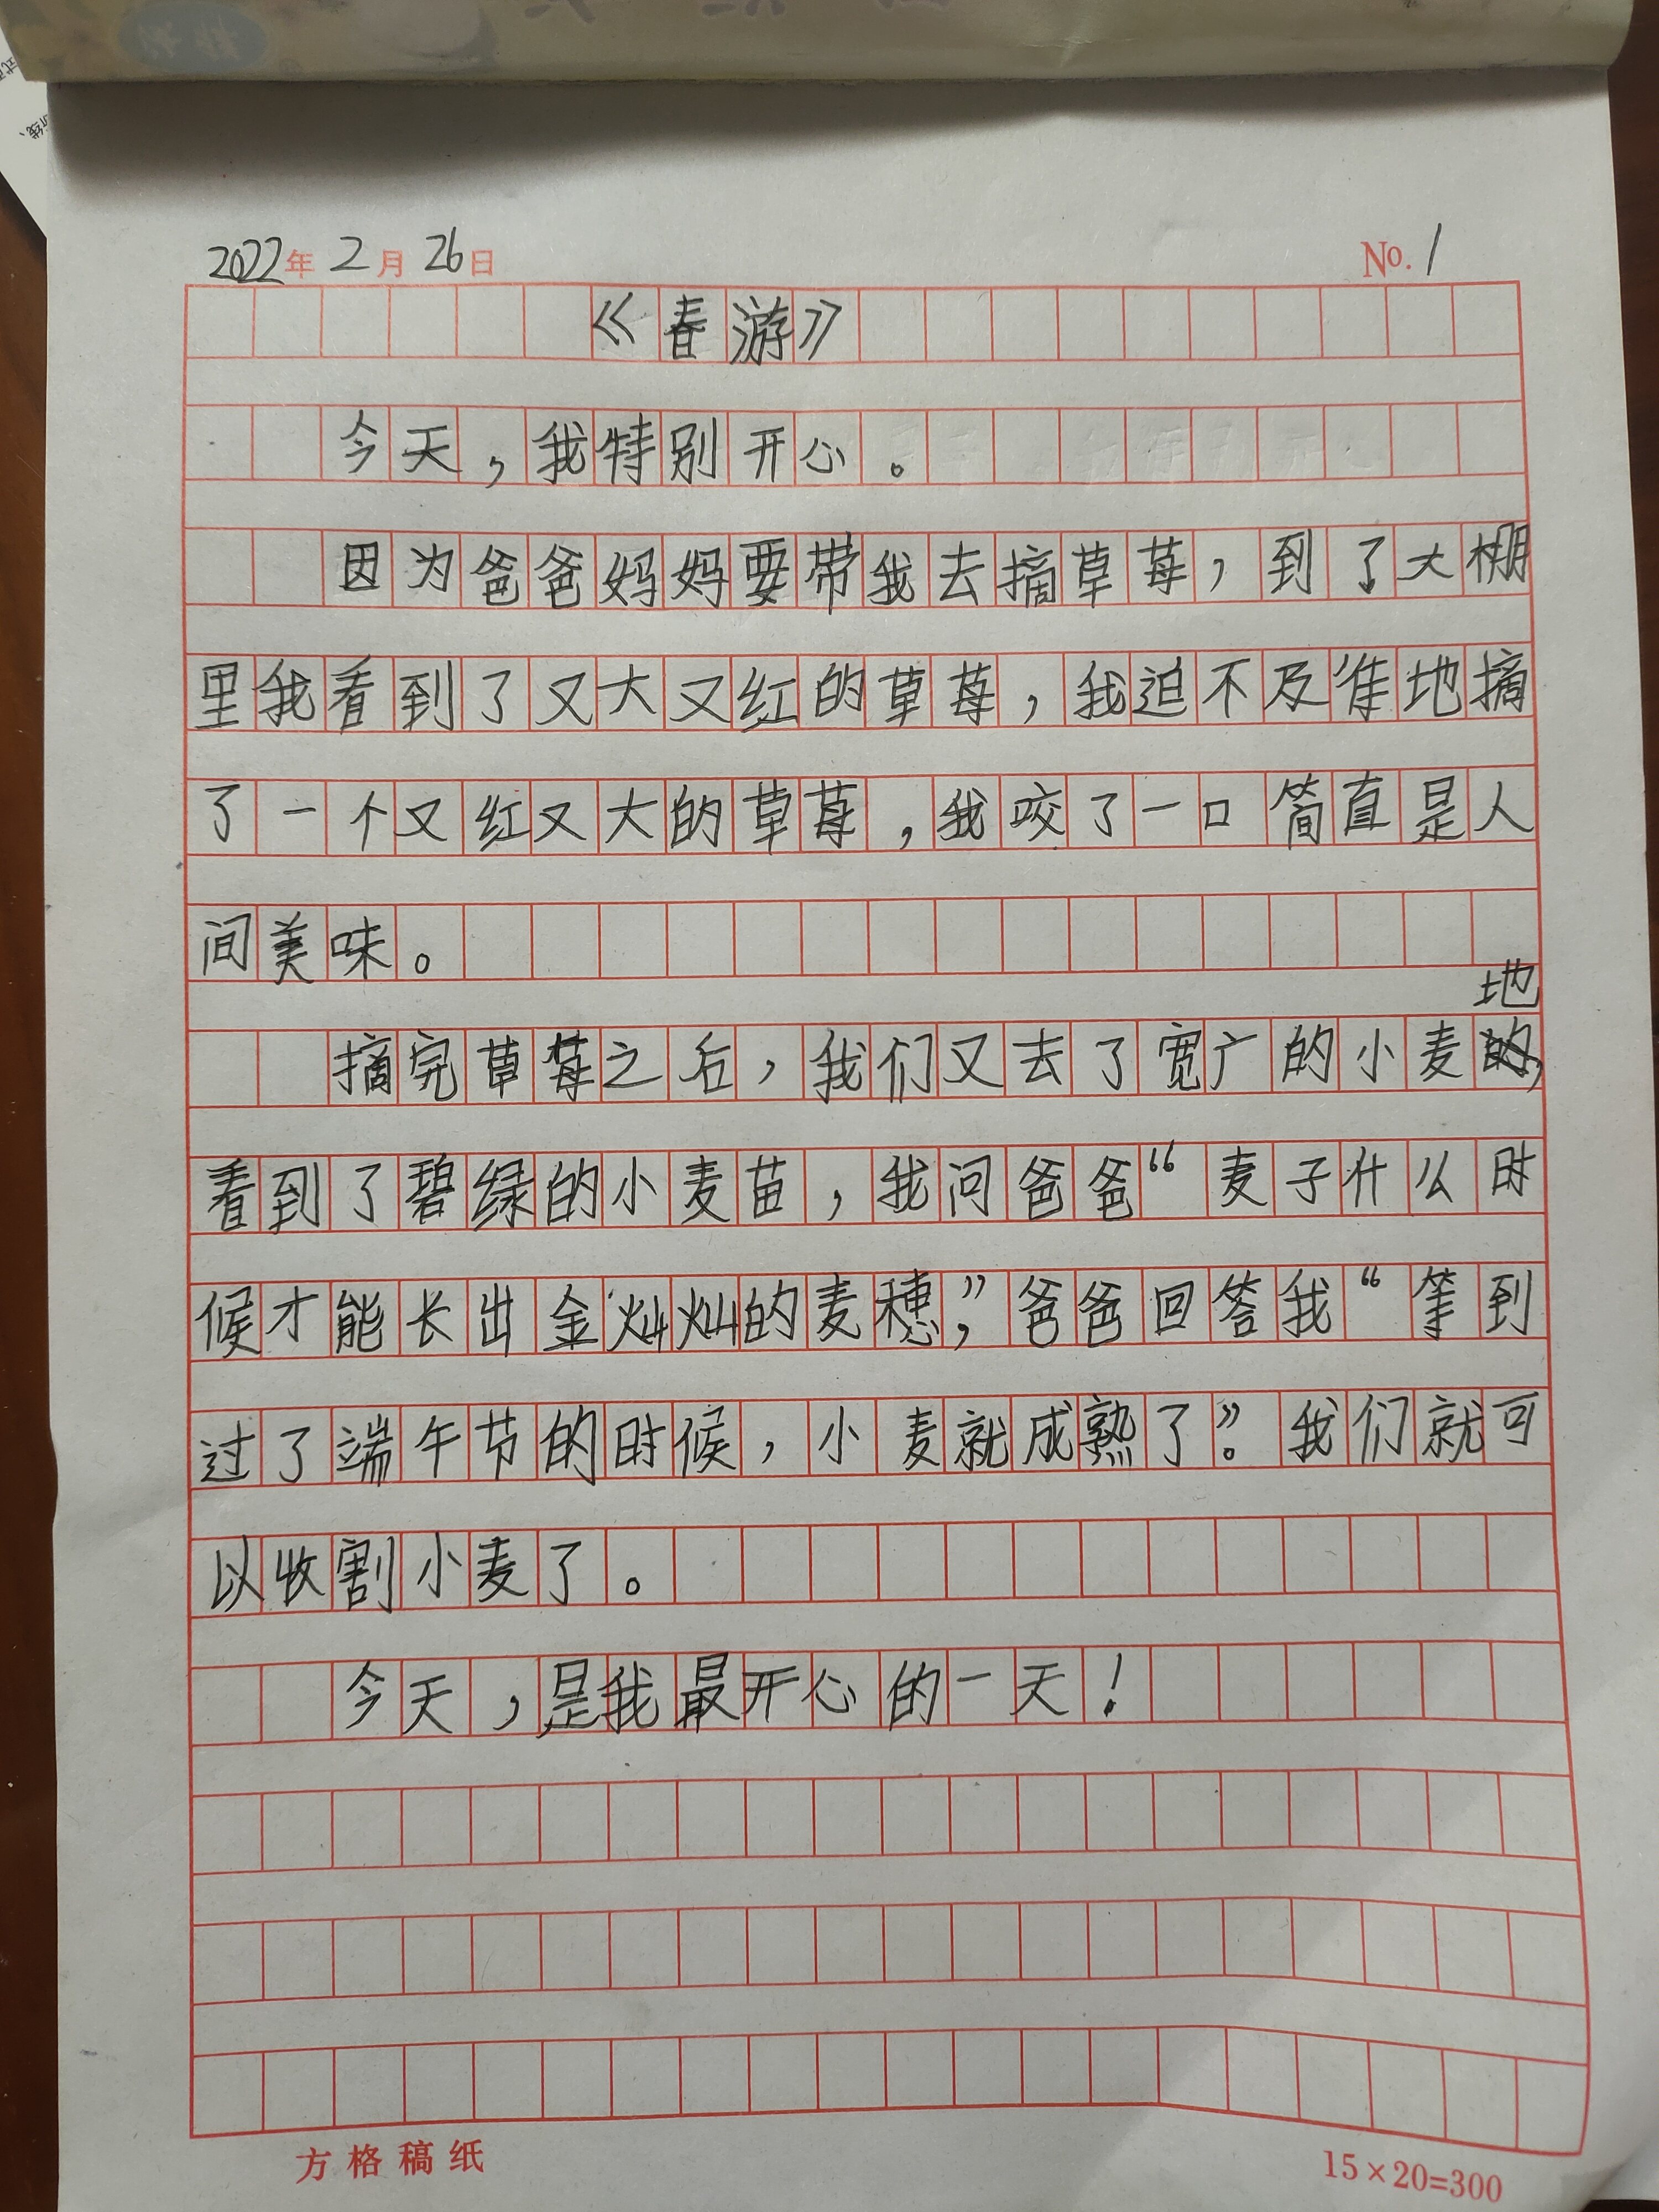 2022年2月26日 No.1
《春游》
今天,我特别开心。
因为爸爸妈妈要带我去摘草莓,到了大棚
里我看到了又大又红的草莓,我迫不及准地摘
了一个又红又大的草莓,我咬了一口简直是人
间美味。
地
摘完草莓之后,我们又去了宽广的小麦的,
看到了碧绿的小麦苗,我问爸爸“麦子什么时
候才能长出金灿灿的麦穗”,爸爸回答我“等到
过了端午节的时候,小麦就成熟了”。我们就可
以收割小麦了。
今天,是我最开心的一天!
方格稿纸 15×20=300